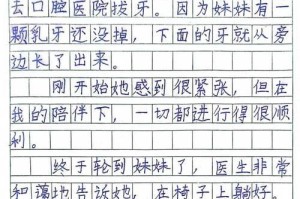 去口腔医院拔牙。因为妹妹有一
颗乳牙还没掉，下面的牙就从旁
边长了出来。
刚开始她感到很紧张，但在
我的陪伴下，一切都进行得很顺
利。
终于轮到妹妹了，医生非常
和蔼地告诉她，在椅子上躺好。